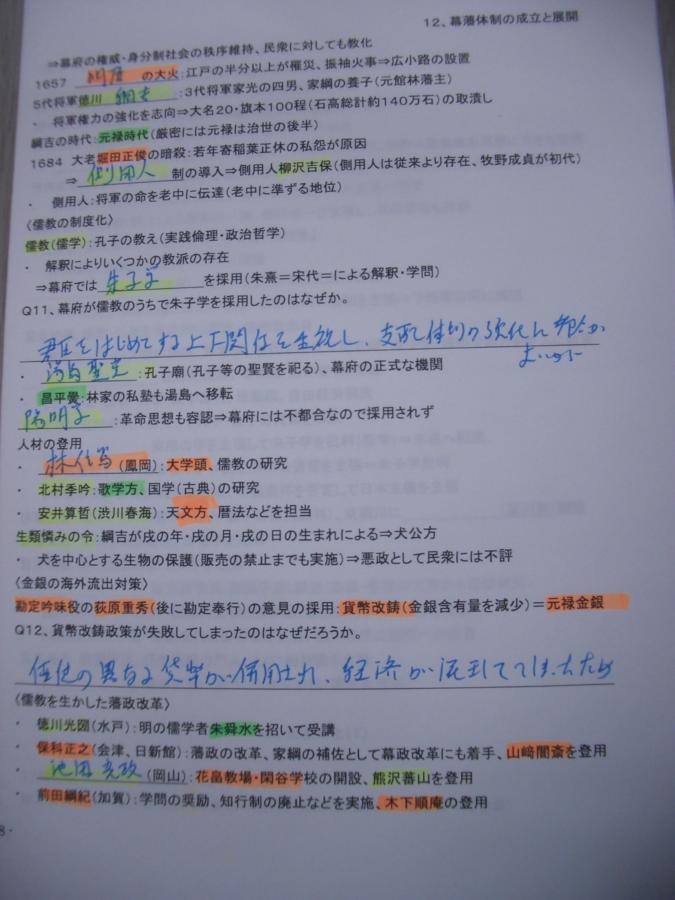 12、幕藩体制の成立と展開
⇒幕府の権威・身分制社会の秩序維持、民衆に対しても教化
1657 明暦の大火:江戸の半分以上が罹災、振袖火事⇒広小路の設置
5代将軍徳川 綱吉:3代将軍家光の四男、家綱の養子(元館林藩主)
・ 将軍権力の強化を志向⇒大名20・旗本100程(石高総計約140万石)の取潰し
綱吉の時代:元禄時代(厳密には元禄は治世の後半)
1684 大老堀田正俊の暗殺:若年寄稲葉正休の私怨が原因
⇒ 側用人 制の導入⇒側用人柳沢吉保(側用人は従来より存在、牧野成貞が初代)
・ 側用人:将軍の命を老中に伝達(老中に準ずる地位)
〈儒教の制度化〉
儒教(儒学):孔子の教え(実践倫理・政治哲学)
・ 解釈によりいくつかの教派の存在
⇒幕府では 朱子学 を採用(朱熹=宋代=による解釈・学問)
Q11、幕府が儒教のうちで朱子学を採用したのはなぜか。
君臣をはじめとする上下関係を重視し、支配体制の強化に都合が
よいから
・ 湯島聖堂:孔子廟(孔子等の聖賢を祀る)、幕府の正式な機関
・ 昌平黌:林家の私塾も湯島へ移転
陽明学:革命思想も容認⇒幕府には不都合なので採用されず
人材の登用
・ 林信篤(鳳岡):大学頭、儒教の研究
・ 北村季吟:歌学方、国学(古典)の研究
・ 安井算哲(渋川春海):天文方、暦法などを担当
生類憐みの令:綱吉が戌の年・戌の月・戌の日の生まれによる⇒犬公方
・ 犬を中心とする生物の保護(販売の禁止までも実施)⇒悪政として民衆には不評
〈金銀の海外流出対策〉
勘定吟味役の荻原重秀(後に勘定奉行)の意見の採用:貨幣改鋳(金銀含有量を減少)=元禄金銀
Q12、貨幣改鋳政策が失敗してしまったのはなぜだろうか。
価値の異なる貨幣が併用され、経済が混乱してしまったため
〈儒教を生かした藩政改革〉
・ 徳川光圀(水戸):明の儒学者朱舜水を招いて受講
・ 保科正之(会津、日新館):藩政の改革、家綱の補佐として幕政改革にも着手、山崎闇斎を登用
・ 池田光政(岡山):花畠教場・閑谷学校の開設、熊沢蕃山を登用
・ 前田綱紀(加賀):学問の奨励、知行制の廃止などを実施、木下順庵の登用
8・